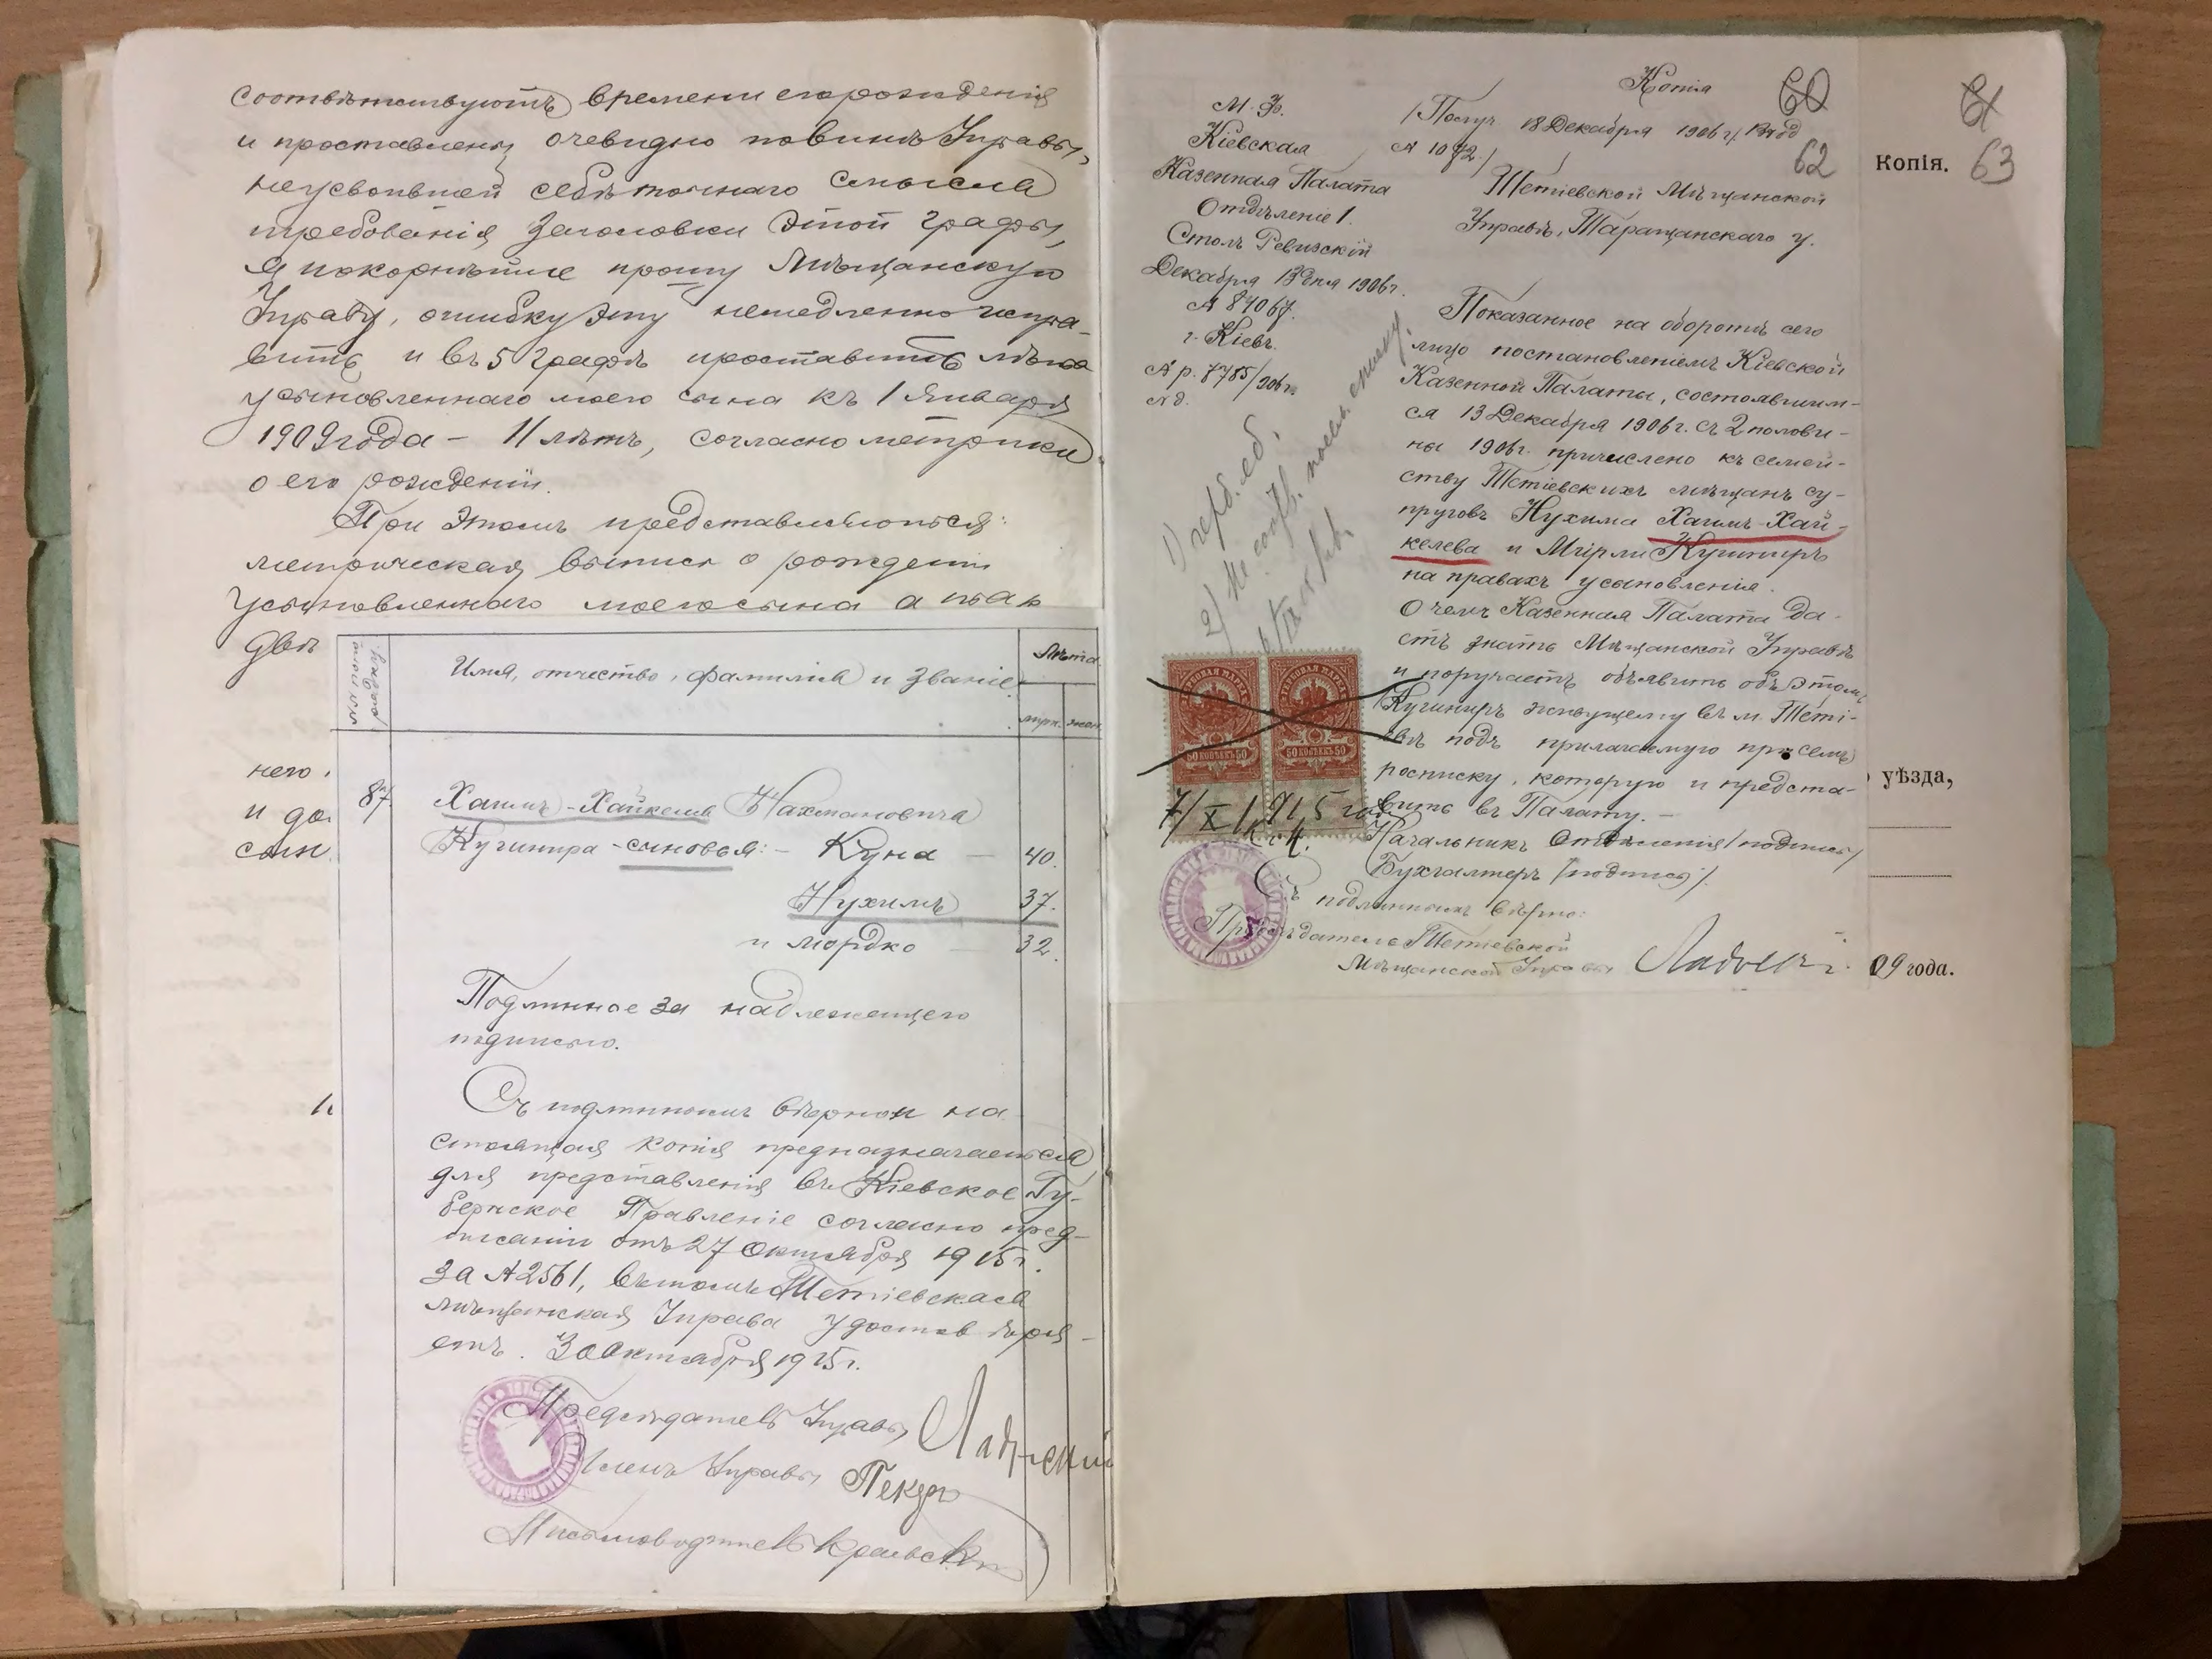 соотвѣтствуютъ времени его рожденія
и проставлены очевидно по винѣ Управы,
неусвоившей себѣ точнаго смысла
требованія заголовки этой графы,
Я покорнѣйше прошу Мѣщанскую
Управу, ошибку эту немедленно испра-
вить и въ 5 графѣ проставить лѣта
усыновленнаго моего сына къ 1 Января
1909 года – 11 лѣтъ, согласно метрики
о его рожденіи.
При этомъ представляются:
метрическая выпись о рожденіи
усыновленнаго моего сына а так
двѣ
него
и до
сын
№№ по порядку
Имя, отчество, фамилія и званіе.
Лѣта
муж. жен.
87 Хаимъ-Хайкель Нахмановича
Кушнира - сыновья: - Куна — 40.
Нухимъ 37.
и Мордко — 32.
Подлинное за надлежащею
подписью.
Съ подлиннымъ вѣрно и на-
стоящая копія предназначается
для представленія въ Кіевское Гу-
бернское Правленіе согласно пред-
писанія отъ 27 Октября 1915 г.
за № 2561, въ томъ Тетіевская
мѣщанская Управа удостовѣря-
етъ. 30 Октября 1915 г.
Предсѣдатель Управы
Членъ Управы
Письмоводитель
Копія
60
62
61
Копія. 63
М. Ф.
Кіевская
Казенная Палата
Отдѣленіе 1.
Столъ Ревизскій
Декабря 13 дня 1906 г.
№ 87067.
г. Кіевъ.
№ р. 7785/906 г.
/Получ. 18 Декабря 1906 г. Вход
№ 1072/
Тетіевской Мѣщанской
Управѣ, Таращанскаго у.
Показанное на оборотѣ сего
лицо постановленіемъ Кіевской
Казенной Палаты, состоявшим-
ся 13 Декабря 1906 г. съ 2 полови-
ны 1906 г. причислено къ семей-
ству Тетіевскихъ мѣщанъ су-
пруговъ Нухима Хаимъ-Хай-
келева и Мирли Кушниръ
на правахъ усыновленія.
О чемъ Казенная Палата да-
етъ знать Мѣщанской Управѣ
и поручаетъ объявить объ этомъ
Кушниръ живущему въ м. Теті-
евѣ подъ прилагаемую при семъ
росписку, которую и предста-
вить въ Палату. —
Начальникъ Отдѣленія /подпись/
Бухгалтеръ /подпись/.
Съ подлиннымъ вѣрно:
Предсѣдатель Тетіевской
Мѣщанской Управы
ГЕРБОВАЯ МАРКА
50 КОПѢЕКЪ 50
ГЕРБОВАЯ МАРКА
50 КОПѢЕКЪ 50
7/X 1915 года
уѣзда,
09 года.